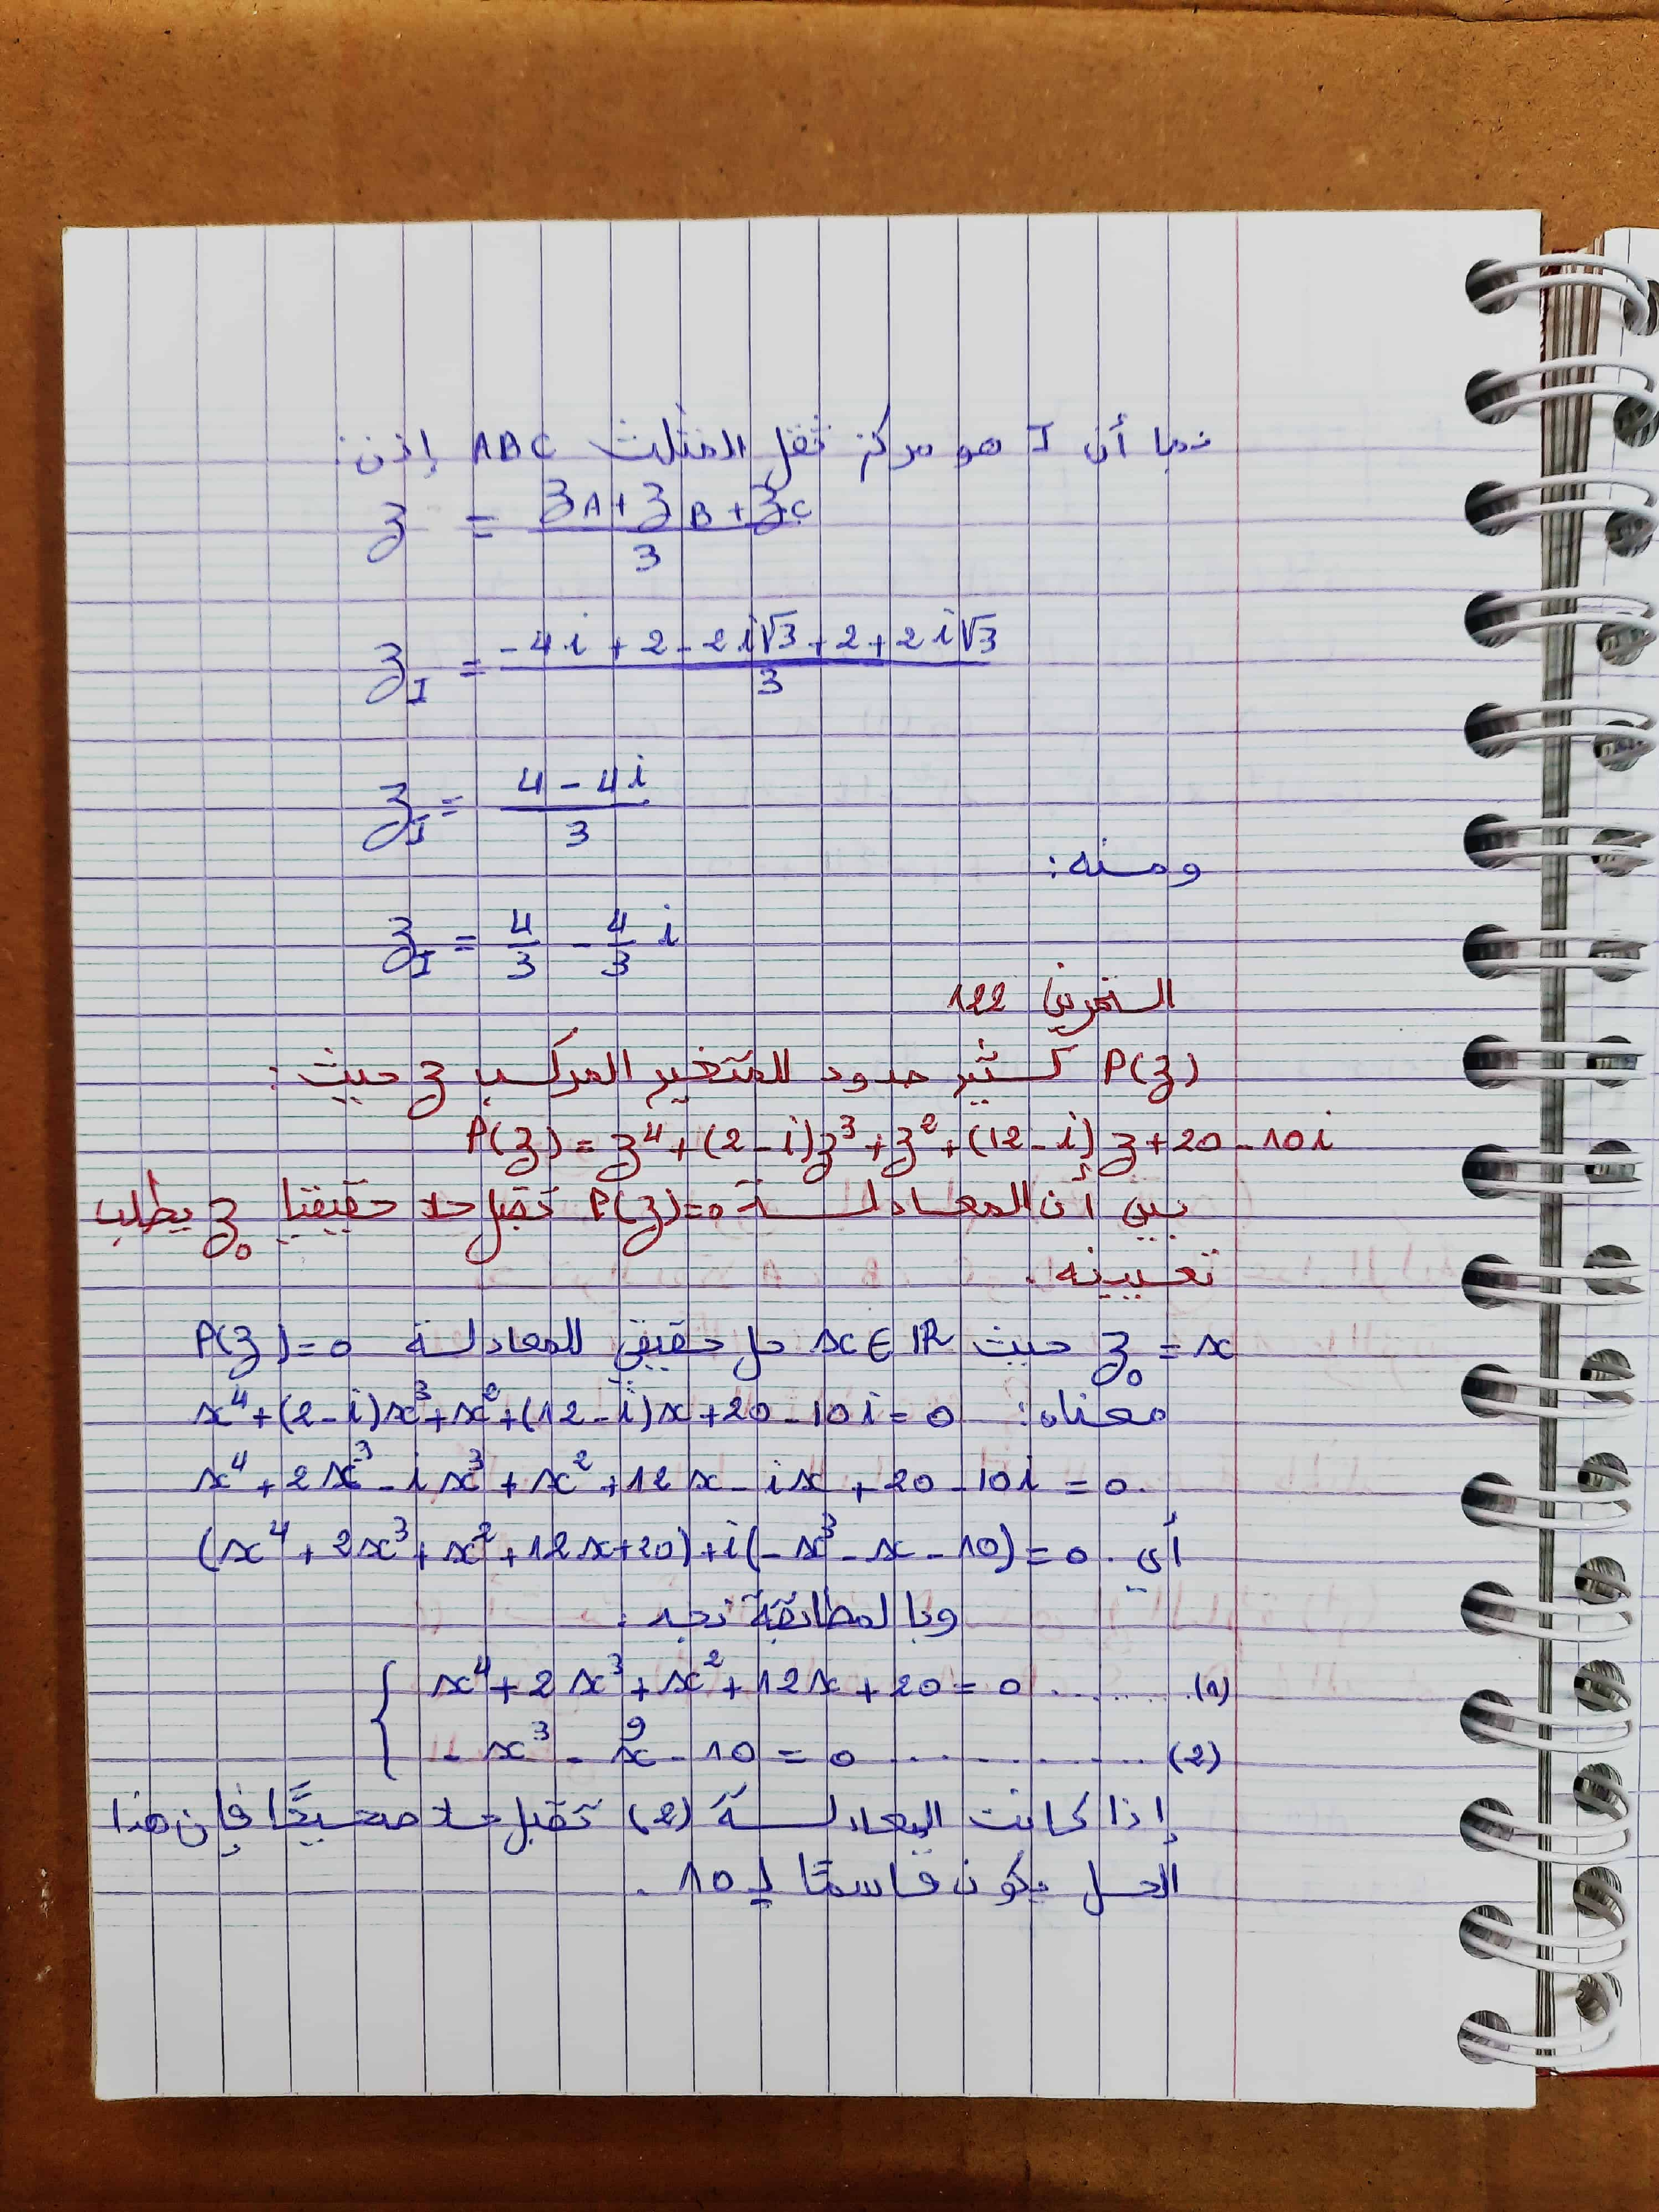 بما أن I هو مركز ثقل المثلث ABC إذن:
z = (z_A + z_B + z_C) / 3
z_I = (-4i + 2 - 2i√3 + 2 + 2i√3) / 3
z_I = (4 - 4i) / 3
ومنه:
z_I = 4/3 - 4/3 i
التمرين 122
P(z) كثير حدود للمتغير المركب z حيث:
P(z) = z⁴ + (2 - i)z³ + z² + (12 - i)z + 20 - 10i
بين أن المعادلة P(z)=0 تقبل حلا حقيقيا z₀ يطلب
تعيينه.
z₀ = x حيث x ∈ ℝ حل حقيقي للمعادلة P(z) = 0
معناه: x⁴ + (2 - i)x³ + x² + (12 - i)x + 20 - 10i = 0
x⁴ + 2x³ - ix³ + x² + 12x - ix + 20 - 10i = 0.
أي. (x⁴ + 2x³ + x² + 12x + 20) + i(-x³ - x - 10) = 0
وبالمطابقة نجد.
{ x⁴ + 2x³ + x² + 12x + 20 = 0 ........ (1)
- x³ - x - 10 = 0 ............ (2)
إذا كانت المعادلة (2) تقبل حلا صحيحًا فإن هذا
الحل يكون قاسمًا لـ 10.